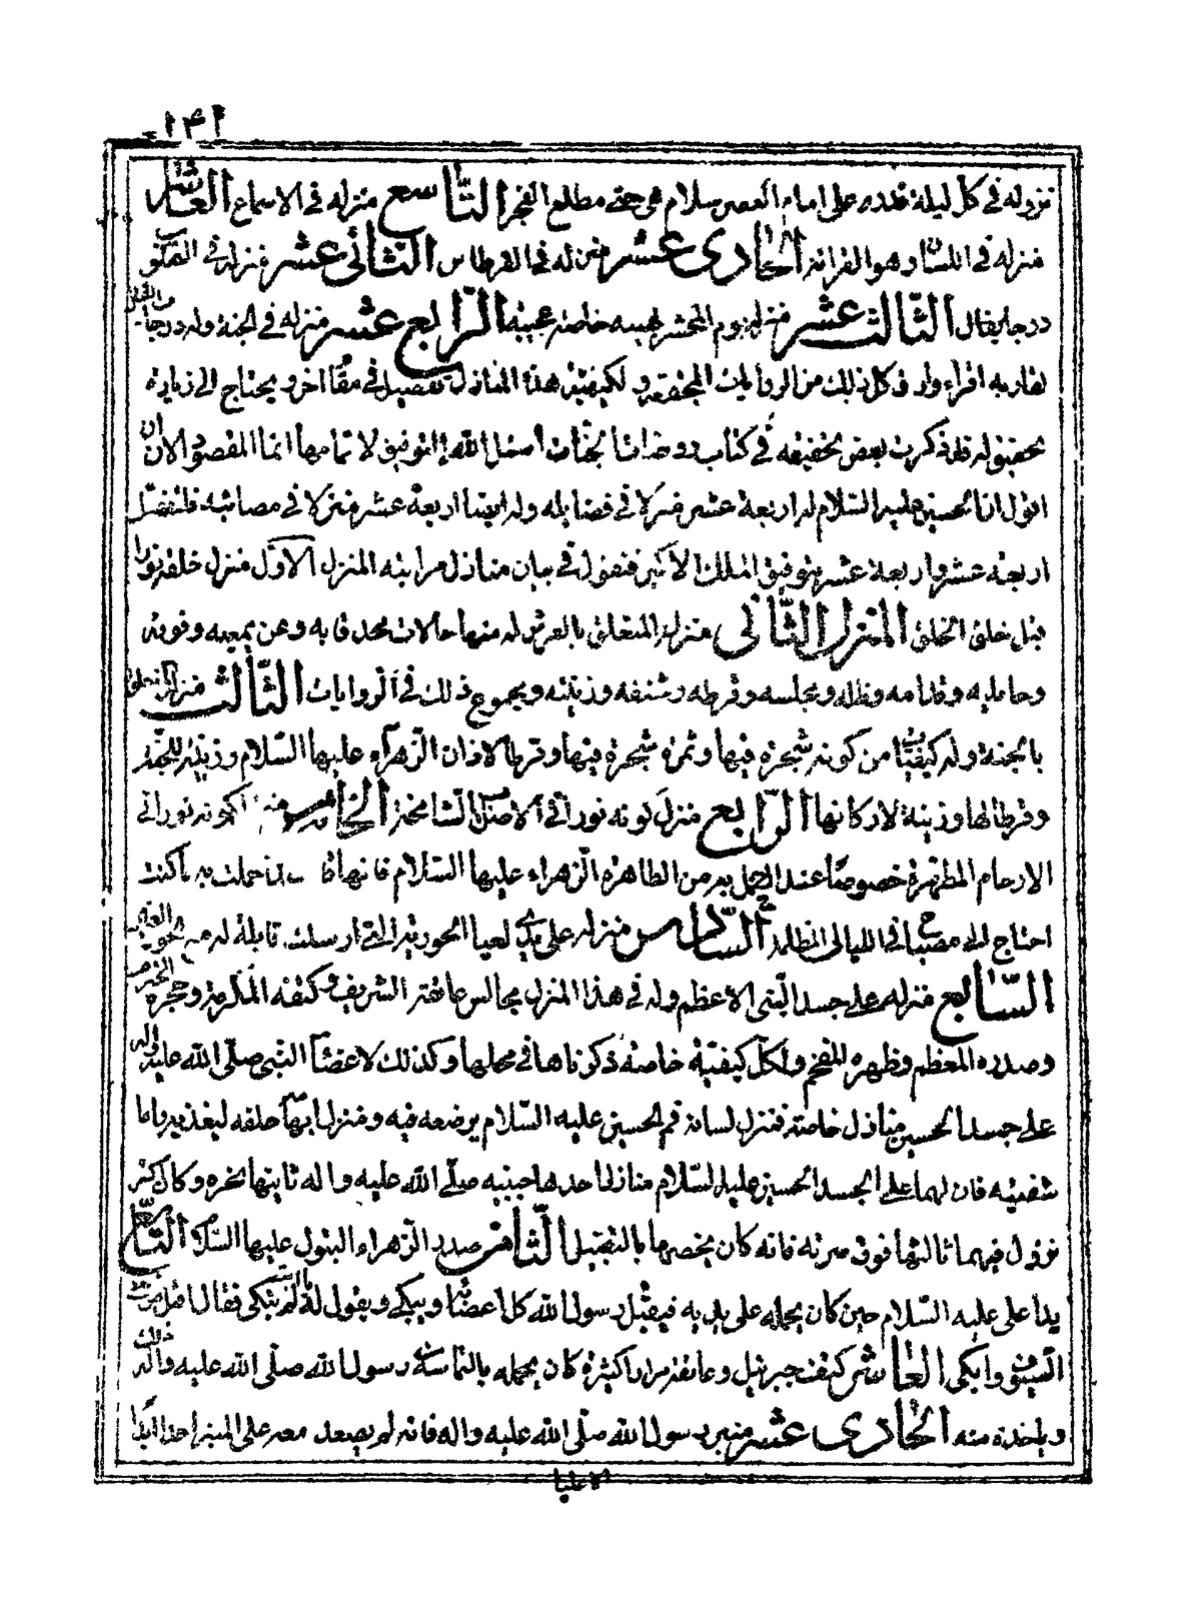 ١٤١
نزوله في كل ليلة قدر على امام العصر سلام هى حتى مطلع الفجر التاسع منزله في الاسماع العاشر
منزله في اللسان وهو القرائة الحادى عشر منزله في القرطاس الثانى عشر منزله في
درجا يقال الثالث عشر منزله يوم المحشر خاصة عجيبة الرابع عشر منزله في الجنة وله درجات من
لقاريه اقراء وارق كل ذلك من الروايات المحققة ولكيفية هذه المنازل تفصيل في مقام اخر ويحتاج الى زيادة
تحقيق وله قد ذكرت بعض تحقيقه في كتاب روضات الجنات اسئل الله التوفيق لاتمامها انما المقصود الان ان
اقول ان الحسين عليه السلام له اربعة عشر منزلا في فضايله وله ايضا اربعة عشر منزلا في مصائبه فلنفصل
اربعة عشر واربعة عشر بتوفيق الملك الاكبر فنقول في بيان منازل مراتبه المنزل الاول منزل خلقه نورا
قبل خلق الخلق المنزل الثانى منزله المتعلق بالعرش له منها حالات محدقا به وعن يمينه وفوقه
وحامليه وقدامه وظله ومجلسه وقرطه وشنفه وزينته ومجموع ذلك في الروايات الثالث منزله المتعلق
بالجنة وله كيفيات من كونه شجرة فيها وثمرة شجرة فيها وقرطا لاذان الزهراء عليها السلام وزينة للجنة
وقرطا لها وزينة لاركانها الرابع منزل كونه نورا في الاصلاب الشامخة الخامس منزل كونه نورا في
الارحام المطهرة خصوصا عند الحمل به من الطاهرة الزهراء عليها السلام فانها قالت لما حملت به ما كنت
احتاج الى مصباح في الليالى المظلمة السادس منزله على يدى لعيا الحورية التى ارسلت قابلة له من
السابع منزله على جسد النبى الاعظم وله في هذا المنزل مجالس عاتقه الشريف وكتفه المكرمة وحجره
وصدره المعظم وظهره المفخم ولكل كيفية خاصة ذكرناها في محلها وكذلك لاعضاء النبى صلى الله عليه واله
على جسد الحسين منازل خاصة فمنزل لسانه فم الحسين عليه السلام يوضعه فيه ومنزل ابهامه حلقه ليغذيه واما
شفتيه فان لهما على الجسد الحسين عليه السلام منازل احدها جبينه صلى الله عليه واله ثانيها نحره وكان اكثر
نزول فيهما ثالثها فوق سرته فانه كان يخصها بالتقبيل الثامن صدر الزهراء البتول عليها السلام التاسع
يدا على عليه السلام حين كان يحمله على يديه فيقبل رسول الله كل اعضائه ويبكى ويقول له لم تبكى فقال اقبل
السيوف وابكى العاشر كتف جبرئيل وعاتقه مرارا كثيرة كان يحمله بالتماسه رسول الله صلى الله عليه واله ذلك
وياخذه منه الحادى عشر منبر رسول الله صلى الله عليه واله فانه لم يصعد معه على المنبر احدا ابدا
الا عليا